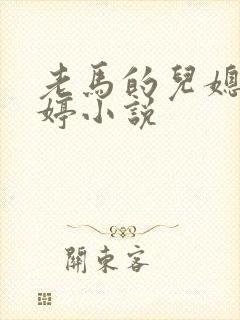 老馬的兒媳
婷小說
關東客